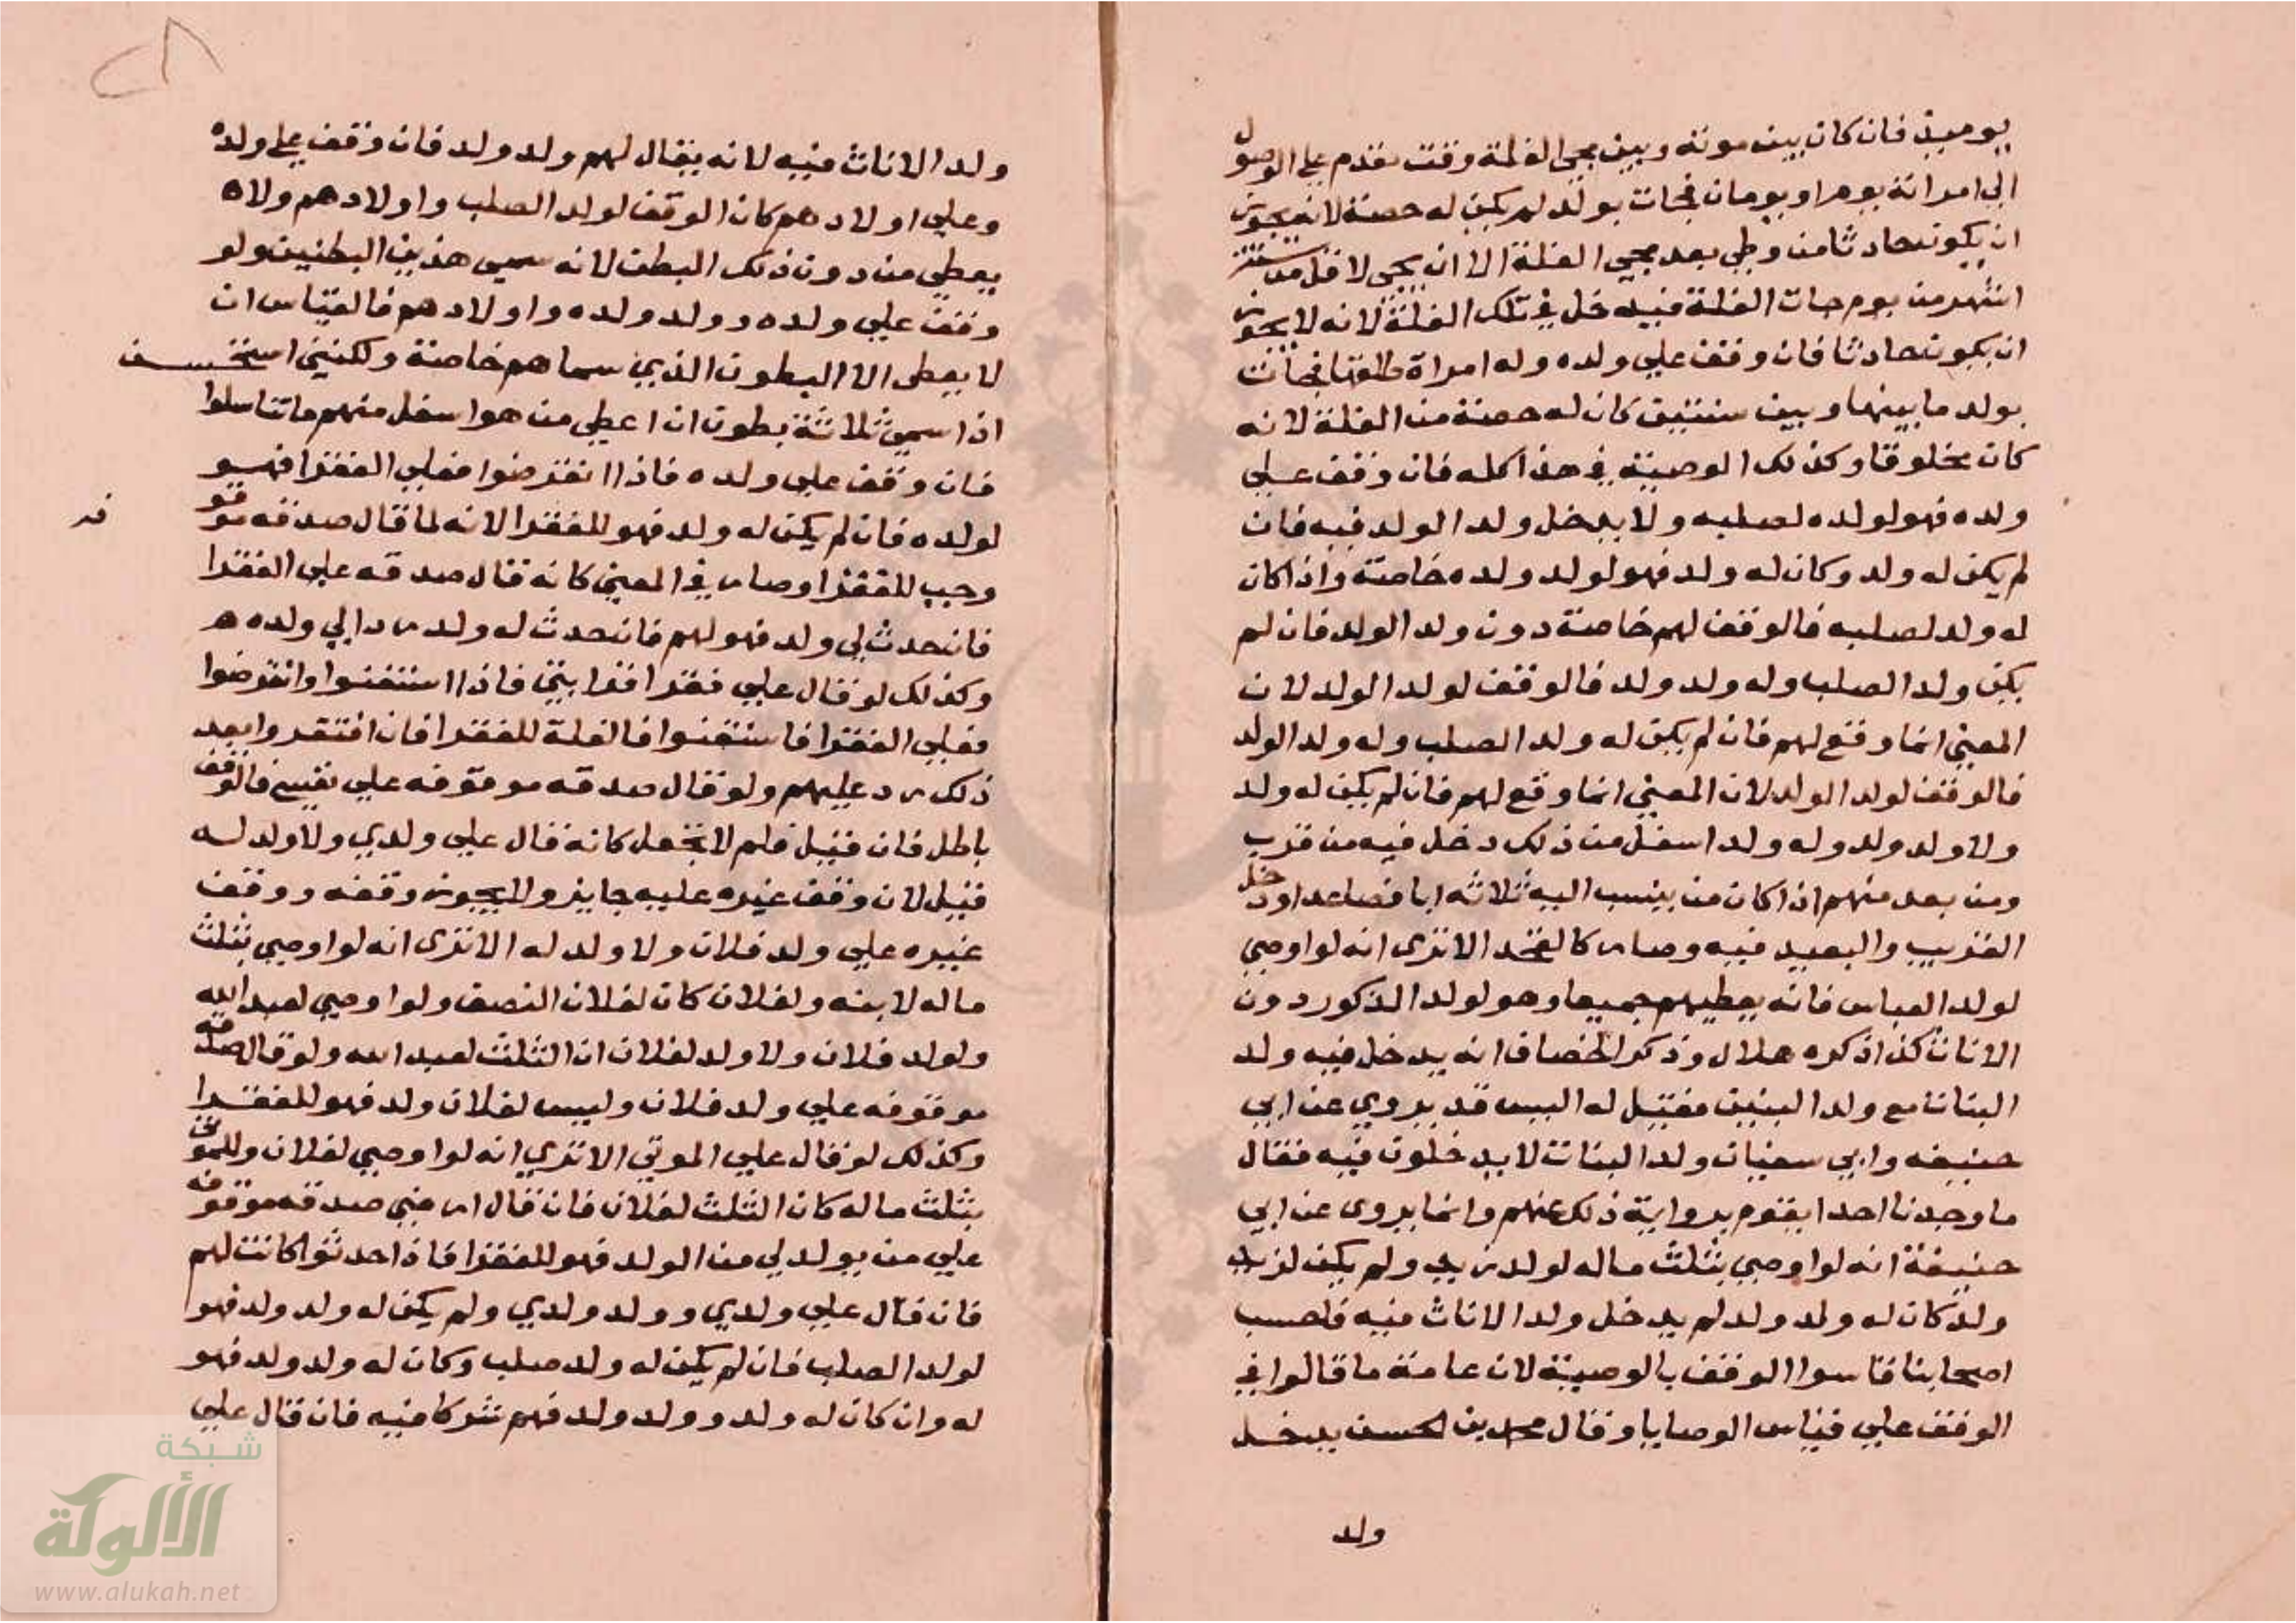 يوميذ فان كان بين موته وبين مجي الغلة وقت تقدم علي الوصول
الي امراته يوم او يومان فجات بولد لم يكن له حصة لانه يجوز
ان يكون حادثا من وطي بعد مجي الغلة الا ان يجي لاقل من ستة
اشهر من يوم جات الغلة فيدخل في تلك الغلة لانه لا يجوز
ان يكون حادثا فان وقف علي ولده وله امراة طلقها فجات
بولد ما بينها وبين سنتين كان له حصة من الغلة لانه
كان مخلوقا وكذلك الوصية في هذا كله فان وقف علي
ولده فهو لولده لصلبه ولا يدخل ولد الولد فيه فان
لم يكن له ولد وكان له ولد فهو لولد ولده خاصة واذا كان
له ولد لصلبه فالوقف لهم خاصة دون ولد الولد فان لم
يكن ولد الصلب وله ولد ولد فالوقف لولد الولد لان
المعني انما وقع لهم فان لم يكن له ولد الصلب وله ولد الولد
فالوقف لولد الولد لان المعني انما وقع لهم فان لم يكن له ولد
ولا ولد ولد وله ولد اسفل من ذلك دخل فيه من قرب
ومن بعد منهم اذا كان من ينسب اليه ثلاثه ابا فصاعدا ودخل
القريب والبعيد فيه وصار كالفخذ الا تري انه لو اوصي
لولد العباس فانه يعطيهم جميعا وهو لولد الذكور دون
الاناث كذا ذكره هلال وذكر الخصاف انه يدخل فيه ولد
البنات مع ولد البنين فقيل له اليس قد يروي عن ابي
حنيفه وابي سفيان ولد البنات لا يدخلون فيه فقال
ما وجدنا احدا يقوم برواية ذلك عنهم وانما يروي عن ابي
حنيفة انه لو اوصي بثلث ماله لولد زيد ولم يكن لزيد
ولد كان له ولد ولد لم يدخل ولد الاناث فيه فلحسب
اصحابنا قاسوا الوقف بالوصية لان عامة ما قالوا في
الوقف علي قياس الوصايا وقال محمد بن الحسن يدخل
ولد
ولد الاناث فيه لانه يقال لهم ولد ولد فان وقف علي ولده
وعلي اولادهم كان الوقف لولد الصلب واولادهم ولاه
يعطي من دون ذلك البطن لانه سمي هذين البطنين ولو
وقف علي ولده وولد ولده واولادهم فالقياس ان
لا يعطي الا البطون الذي سماهم خاصة ولكنني استحسن
اذا سمي ثلاثة بطون ان اعطي من هو اسفل منهم ما تناسلوا
فان وقف علي ولده فاذا انقرضوا فعلي الفقرا فهو
لولده فان لم يكن له ولد فهو للفقرا لانه لما قال صدقه موقو
فه
وجب للفقرا وصار في المعني كانه قال صدقه علي الفقرا
فان حدث لي ولد فهو لهم فان حدث له ولد رد الي ولده ه
وكذلك لو قال علي فقرا قرابتي فاذا استغنوا وانقرضوا
فعلي الفقرا فاستغنوا فالغلة للفقرا فان افتقروا بعد
ذلك رد عليهم ولو قال صدقه موقوفه علي نفسي فالوقف
باطل فان قيل فلم لا تجعل كانه قال علي ولدي ولا ولد له
قيل لان وقف غيره عليه جايز ولا يجوز وقفه ووقف
غيره علي ولد فلان ولا ولد له الا تري انه لو اوصي بثلث
ماله لابنه ولفلان كان لفلان النصف ولو اوصي لعبد الله
ولولد فلان ولا ولد لفلان ان الثلث لعبد الله ولو قال صدقه
موقوفه علي ولد فلان وليس لفلان ولد فهو للفقرا
وكذلك لو قال علي الموتي الا تري انه لو اوصي لفلان وللموتي
بثلث ماله كان الثلث لفلان فان قال ارضي صدقه موقوفه
علي من يولد لي من الولد فهو للفقرا فاذا حدثوا كانت لهم
فان قال علي ولدي وولد ولدي ولم يكن له ولد ولد فهو
لولد الصلب فان لم يكن له ولد صلب وكان له ولد ولد فهو
له وان كان له ولد وولد ولد فهم شركا فيه فان قال علي
شبكة
الألوكة
www.alukah.net